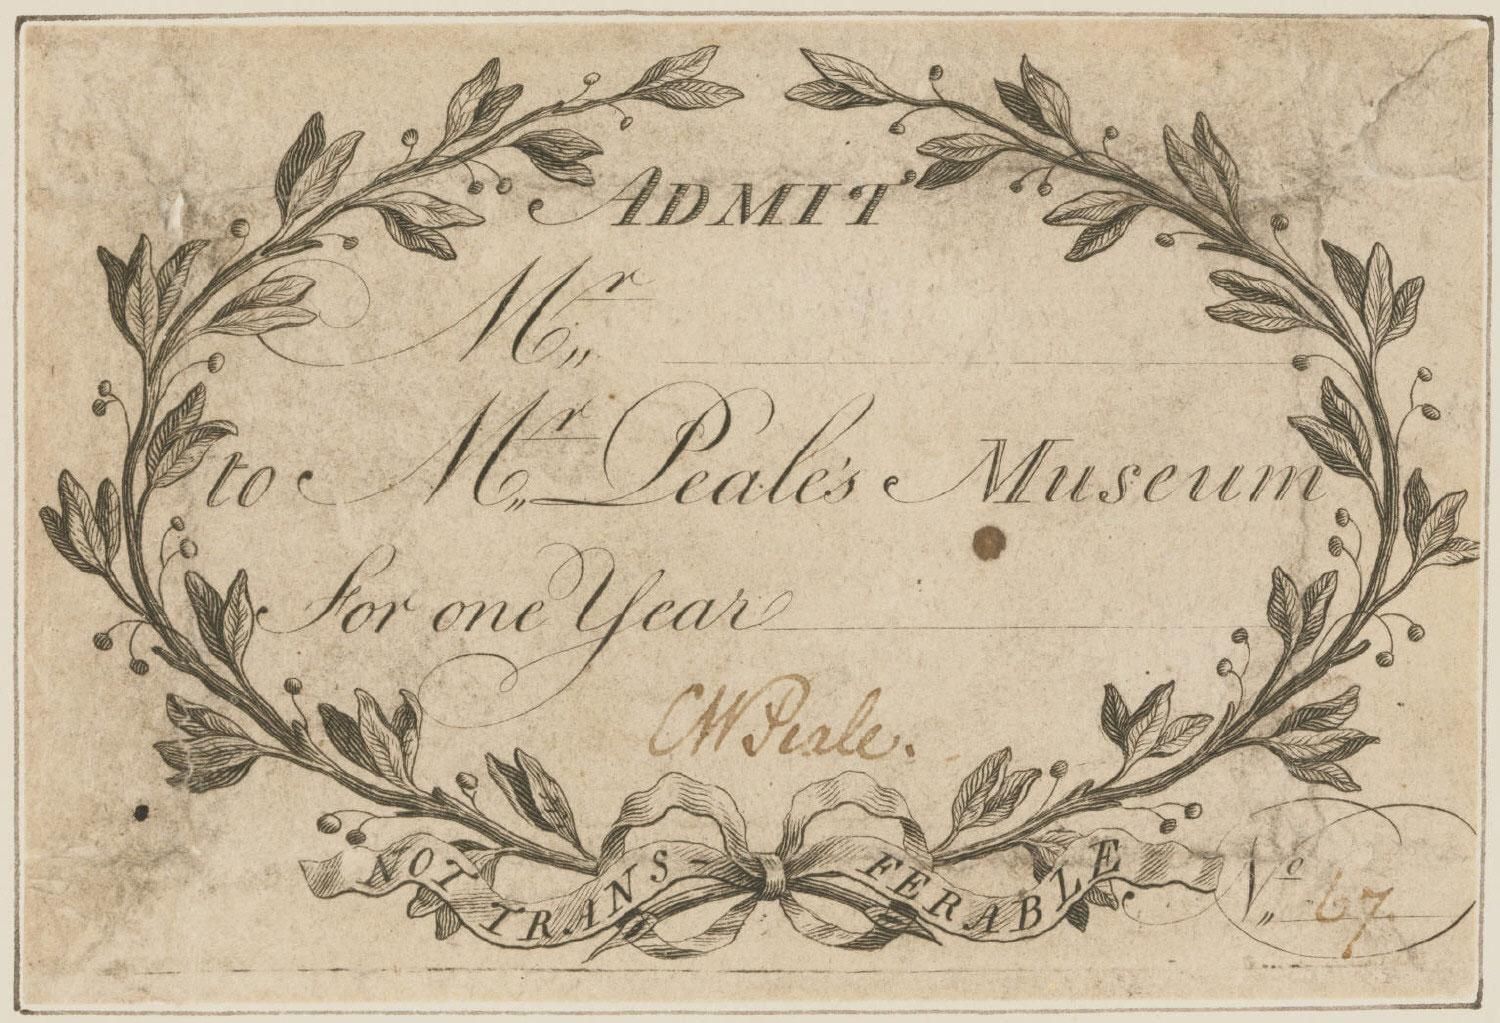 ADMIT
Mr.
to Mr. Peale's Museum
For one Year
CWPeale.
NOT TRANS-FERABLE
No. 67.